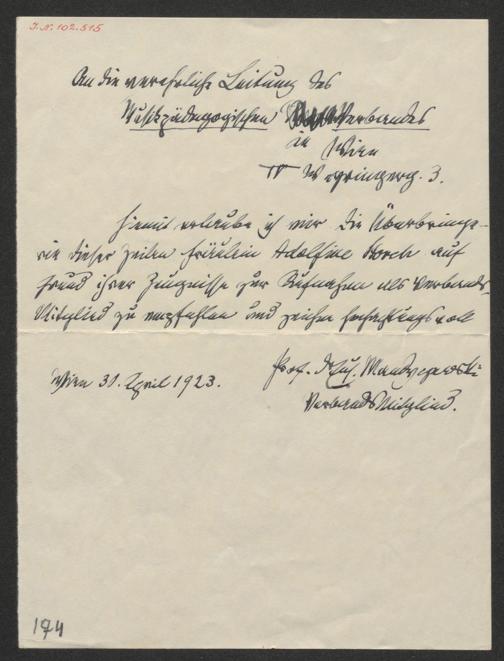 I.N. 102.515
An die verehrliche Leitung des
Musikpädagogischen Verbandes
in Wien
IV 3.
Hiemit erlaube ich mir die Überbringe-
rin dieser Zeilen Fräulein Adolfine Horch auf
Grund ihrer Zeugnisse zur Aufnahme als Verbands-
Mitglied zu empfehlen und zeichne hochachtungsvoll
Prof. Dr. Eus. Mandyczewski
Wien 31. April 1923.
Verbands Mitglied.
194